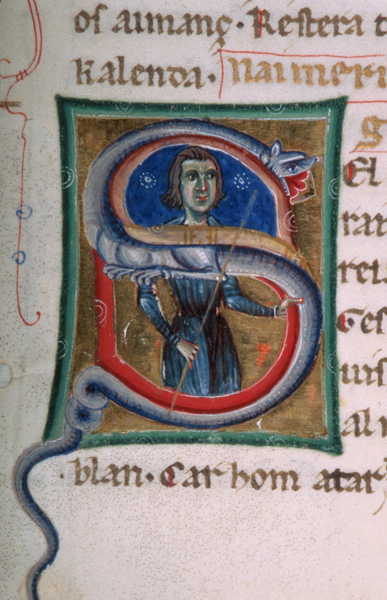 os aimanç · Restera t
kalenda · Naimeri
g
El
rar
ret
Ges
uis
al
blan · Car hom atar